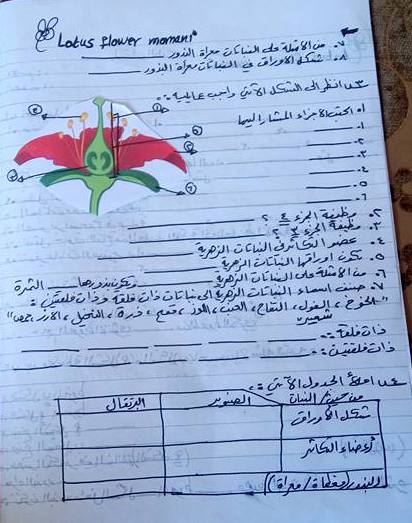 Lotus flower moment
٧. من الأمثلة على النباتات معراة البذور
٨. شكل الأوراق في النباتات معراة البذور
س٣ انظر إلى الشكل الآتي واجب عما يليه :-
١. اكتب الأجزاء المشار إليها
١.
٢.
٣.
٤.
٥.
٦.
٢. وظيفة الجزء ٤ ؟
٣. وظيفة الجزء ٣ ؟
٤. عضو التكاثر في النباتات الزهرية
٥. تكون أوراقها النباتات الزهرية وتكون بذورها الثمرة
٦. من الأمثلة على النباتات الزهرية
٧. صنف أسماء النباتات الزهرية إلى نباتات ذات فلقة وذات فلقتين :
"الخوخ ، الفول ، التفاح ، العنب ، اللوز ، قمح ، ذرة ، النخيل ، الأرز ، حمص"
شعير
ذات فلقة :-
ذات فلقتين :-
س٤ املأ الجدول الآتي :-
من حيث / النبات الصنوبر البرتقال
شكل الأوراق
أعضاء التكاثر
البذور (مغطاة / معراة)